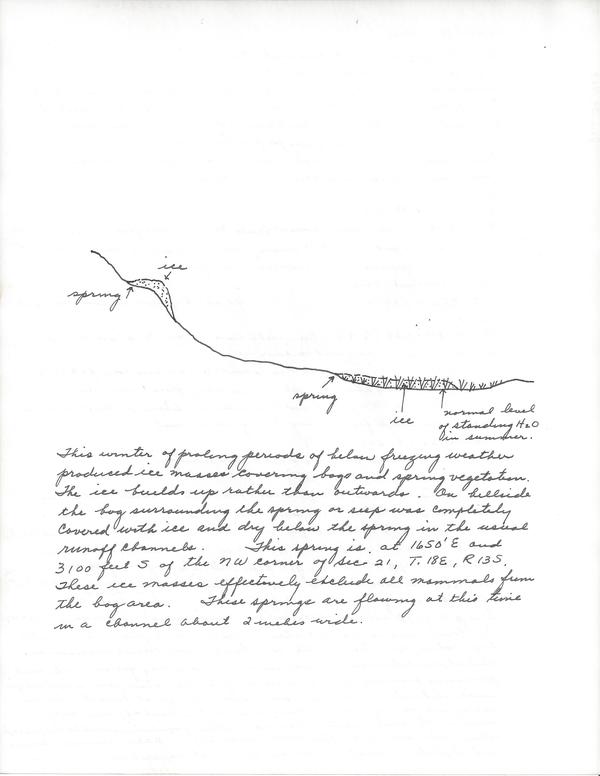 ice
spring
spring
ice
normal level
of standing H2O
in summer.
This winter of prolong periods of below freezing weather
produced ice masses covering bogs and spring vegetation.
The ice builds up rather than outwards. On hillside
the bog surrounding the spring or seep was completely
covered with ice and dry below the spring in the usual
runoff channels. This spring is at 1650' E and
3100 feet S of the NW corner of Sec 21, T. 18E, R 13S.
These ice masses effectively exclude all mammals from
the bog area. These springs are flowing at this time
in a channel about 2 inches wide.